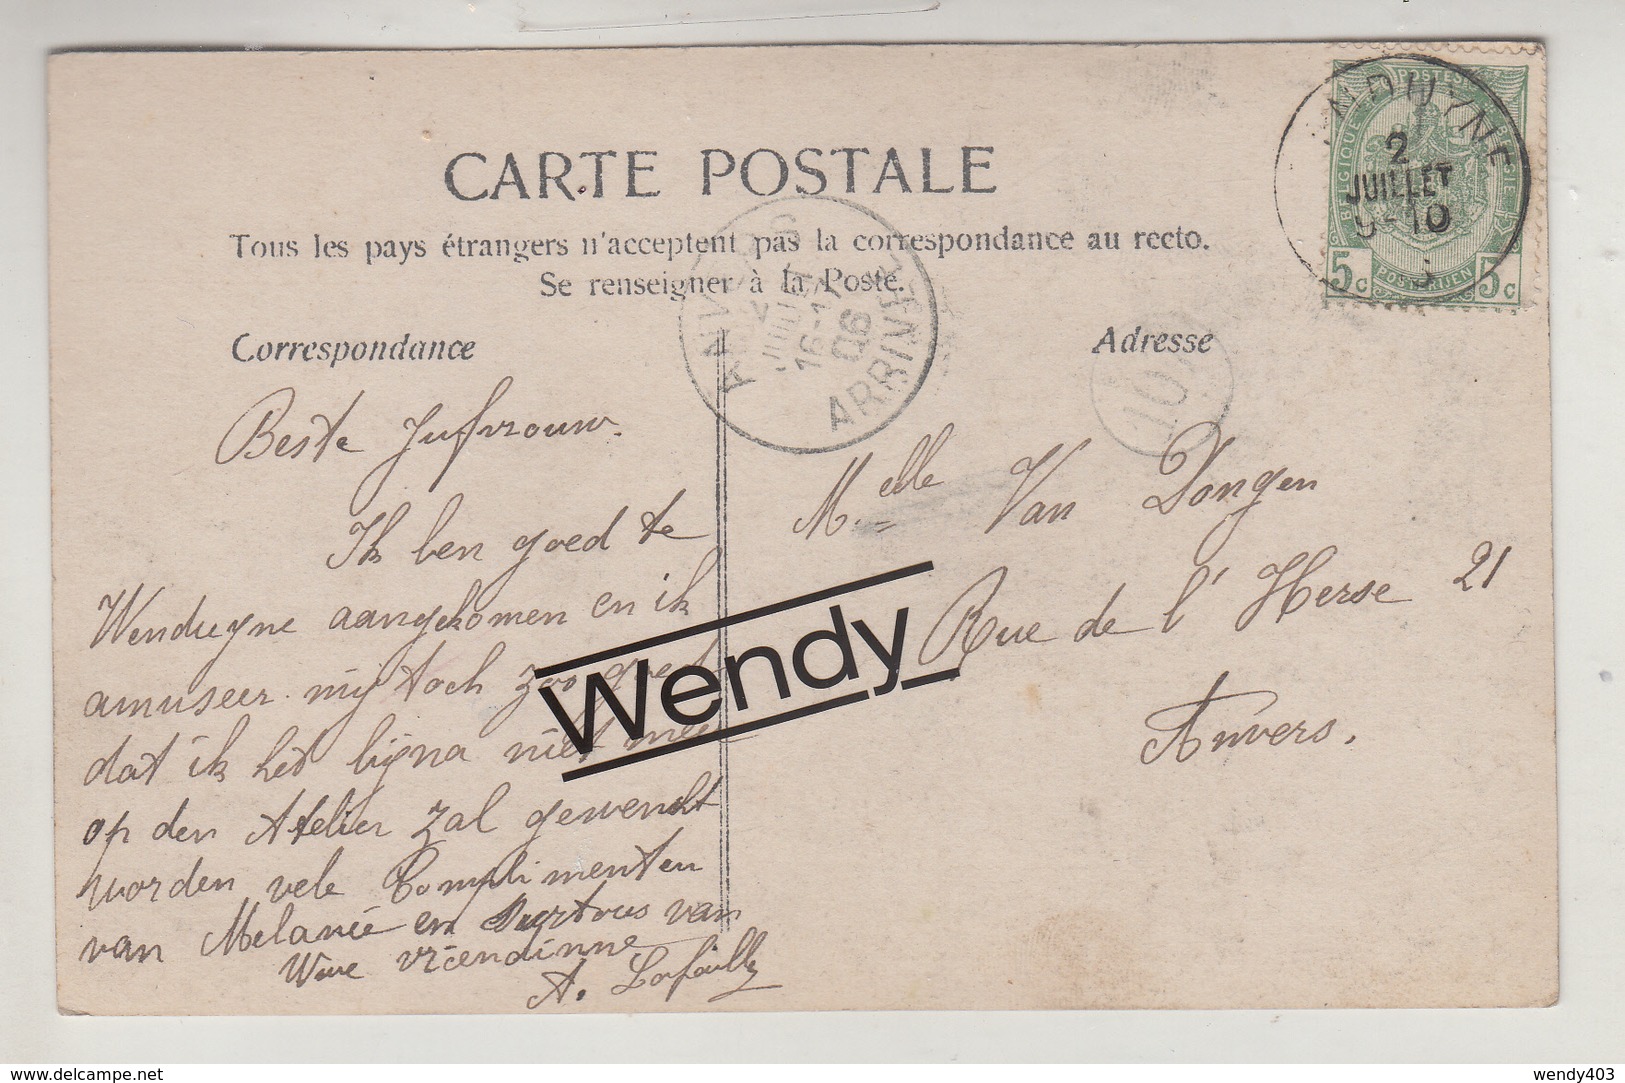 CARTE POSTALE
Tous les pays étrangers n'acceptent pas la correspondance au recto.
Se renseigner à la Poste.
Correspondance
Adresse
POSTES
BELGIQUE
BELGIE
5c
POSTERIJEN
5c
NDUYNE
2
JUILLET
9-10
ANV
2
JUILLET
16-17
06
ARRIN
10
Beste Jufvrouw.
Ik ben goed te
Wenduyne aangekomen en ik
amuseer mij toch zoo goed
dat ik het bijna niet meer
op den Atelier zal gewendt
worden vele Complimenten
van Melanie en surtous van
Uwe vriendinne
A. Lafaille
Melle Van Dongen
Rue de l'Herse 21
Anvers.
Wendy
www.delcampe.net
wendy403